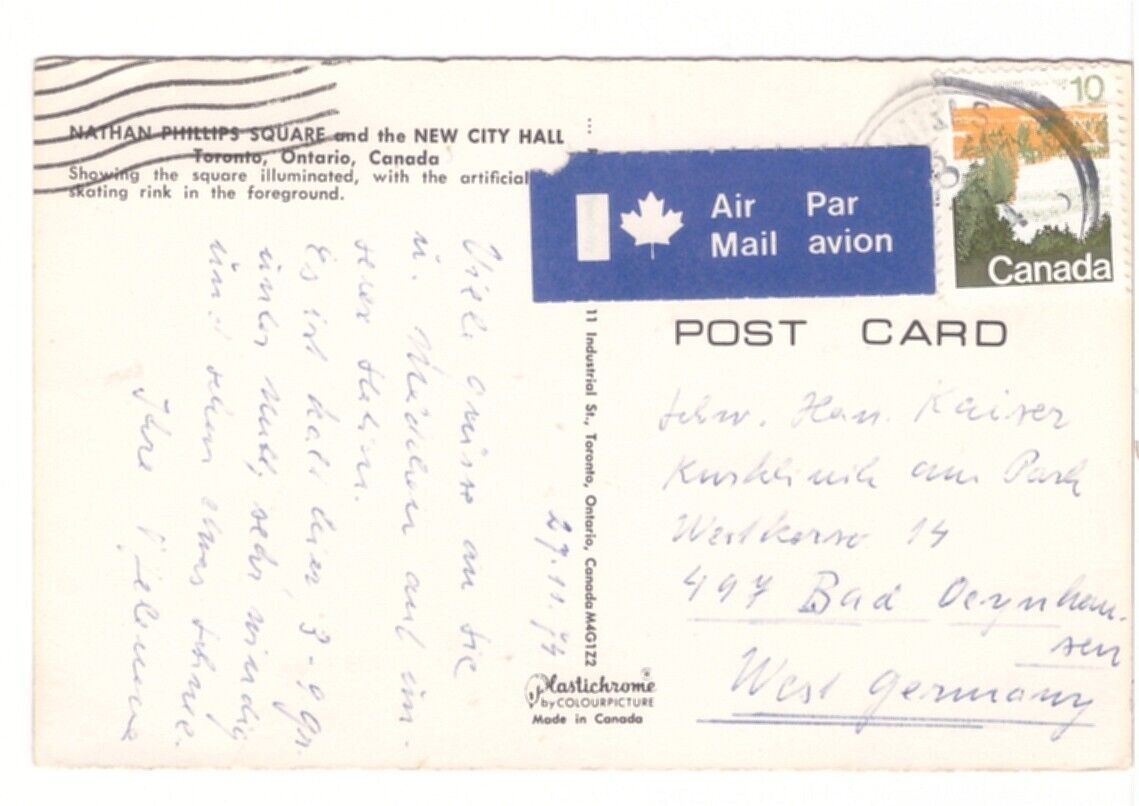 NATHAN PHILLIPS SQUARE and the NEW CITY HALL
Toronto, Ontario, Canada
Showing the square illuminated, with the artificial
skating rink in the foreground.
Air Mail
Par avion
10
Canada
POST CARD
11 Industrial St., Toronto, Ontario, Canada M4G1Z2
27.11.74
Viele Grüsse an Sie
u. Mädchen auf un-
serer Station.
Es ist kalt hier 3-9 Gr.
unter Null, sehr windig
und schon etwas Schnee.
Ihre
Schw. Han. Kaiser
Kurklinik am Park
Westkorso 14
497 Bad Oeynhau-
sen
West Germany
Plastichrome
by COLOURPICTURE
Made in Canada